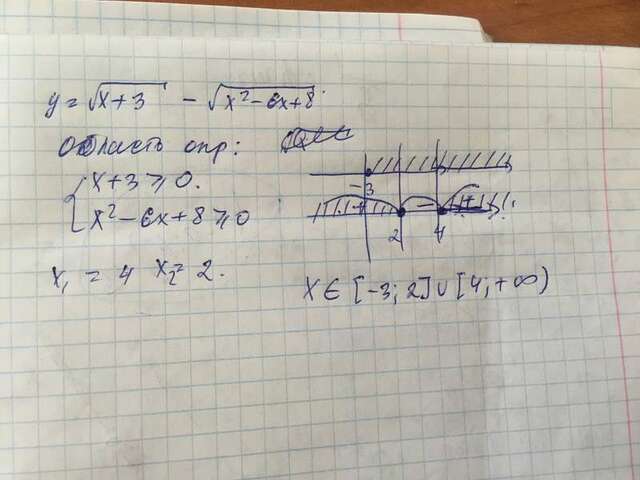 y = √x+3 - √x²-6x+8.
Область опр:
{ x+3 ⩾ 0.
x²-6x+8 ⩾ 0
x₁ = 4 x₂ = 2.
-3
2 4
x ∈ [-3; 2] ∪ [4; +∞)